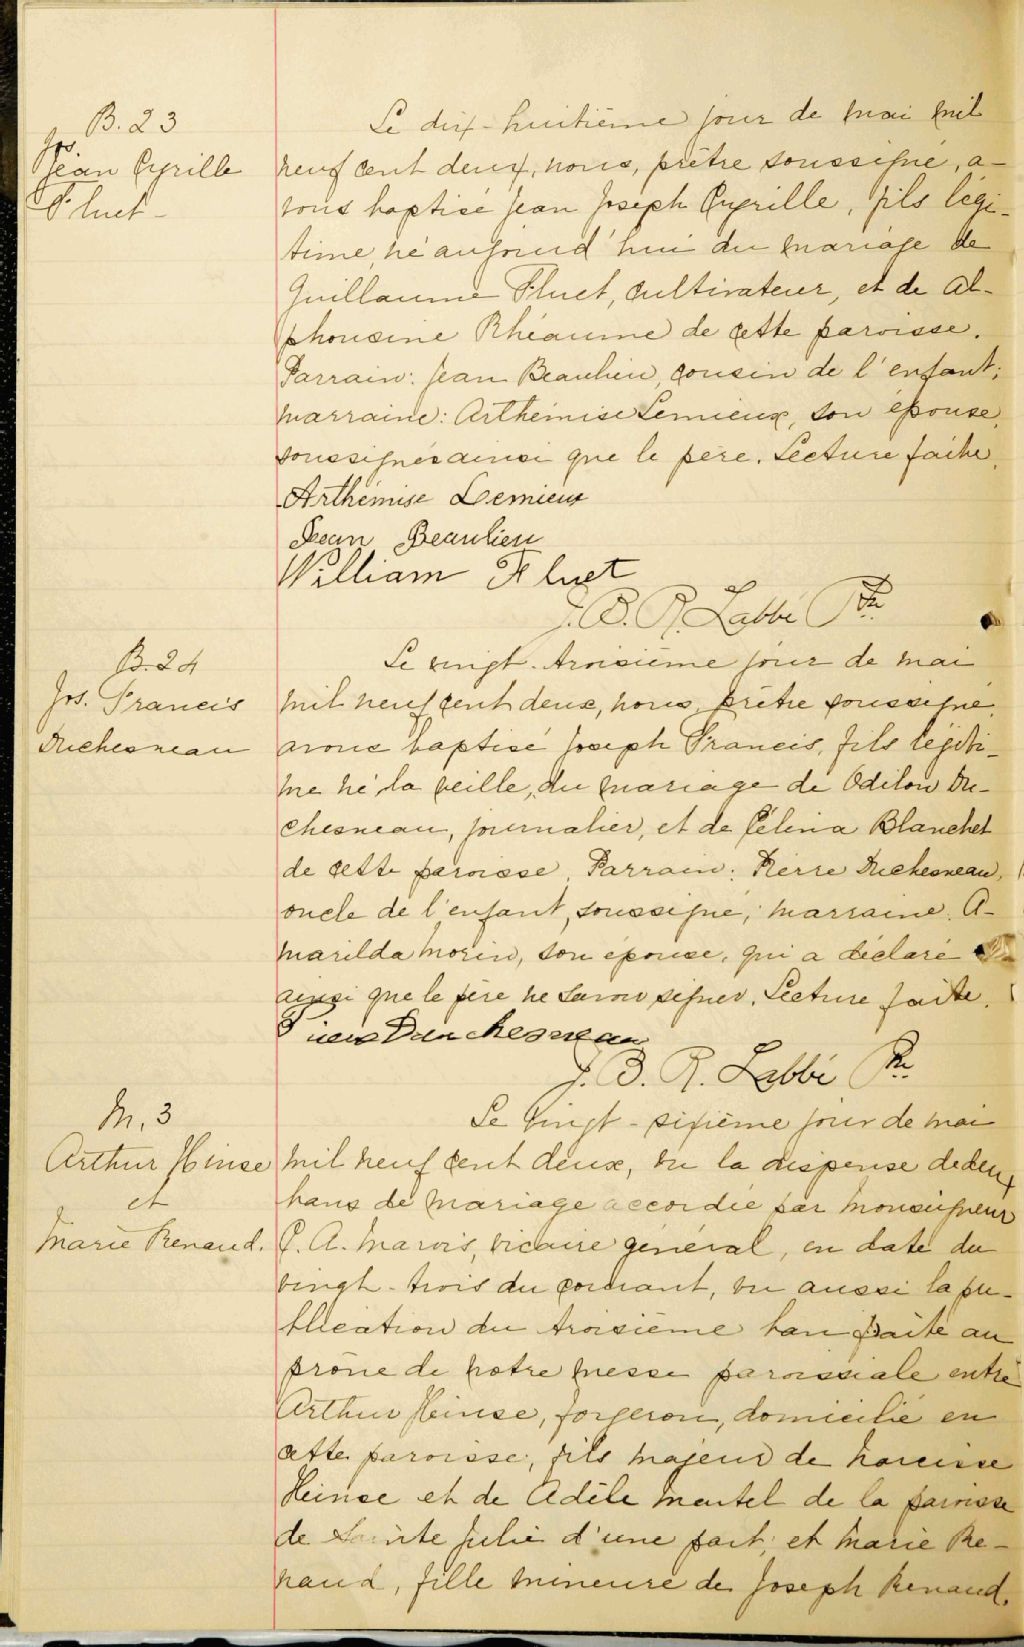 B. 23
Jos.
Jean Cyrille
Fluet -
Le dix-huitième jour de mai mil
neuf cent deux, nous, prêtre soussigné, a-
vons baptisé Jean Joseph Cyrille, fils légi-
time, né aujourd'hui du mariage de
Guillaume Fluet, cultivateur, et de Al-
phonsine Rhéaume de cette paroisse.
Parrain: Jean Beaulieu, cousin de l'enfant;
marraine: Arthémise Lemieux, son épouse,
soussignés ainsi que le père. Lecture faite.
Arthémise Lemieux
Jean Beaulieu
William Fluet
J. B. R. Labbé Ptre
B. 24
Jos. Francis
Duchesneau
Le vingt-troisième jour de mai
mil neuf cent deux, nous, prêtre soussigné,
avons baptisé Joseph Francis, fils légiti-
me né la veille, du mariage de Odilon Du-
chesneau, journalier, et de Célina Blanchet
de cette paroisse. Parrain: Pierre Duchesneau,
oncle de l'enfant, soussigné; marraine, A-
marilda Morin, son épouse, qui a déclaré
ainsi que le père ne savoir signer. Lecture faite.
Duchesneau
J. B. R. Labbé Ptre
M. 3
Arthur Hinse
et
Marie Renaud.
Le vingt-sixième jour de mai
mil neuf cent deux, vu la dispense de deux
bans de mariage accordée par Monseigneur
C. A. Marois, vicaire général, en date du
vingt-trois du courant, vu aussi la pu-
blication du troisième ban faite au
prône de notre messe paroissiale entre
Arthur Heinse, forgeron, domicilié en
cette paroisse, fils majeur de Narcisse
Heinse et de Adèle Martel de la paroisse
de Sainte Julie d'une part; et Marie Re-
naud, fille mineure de Joseph Renaud,